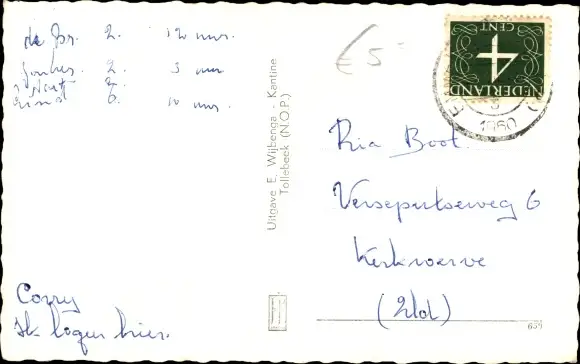 de Br. 2. 12 uur.
2. 3 uur
6. 10 uur.
€ 5
Corry
Ik logeer hier.
Uitgave E. Wijbenga - Kantine
Tollebeek (N.O.P.)
NEDERLAND
4
CENT
1960
Ria Boot.
Verseputseweg 6
Kerkwerve
(Zld)